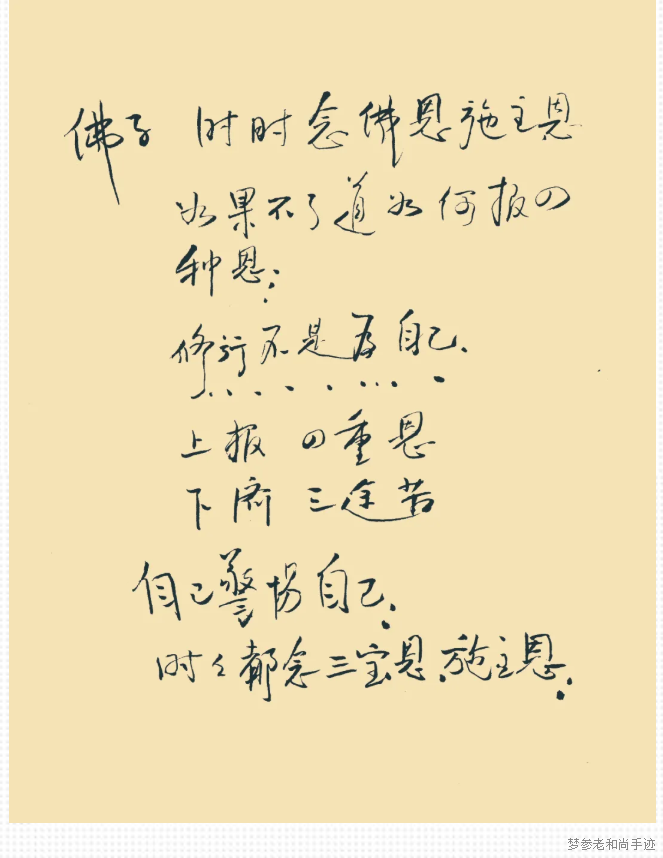 佛子 时时念佛恩施主恩
如果不了道如何报四
种恩：
修行不是为自己、
上报 四重恩
下济 三途苦
自己警惕自己、
时々都念三宝恩、施主恩、
梦参老和尚手迹